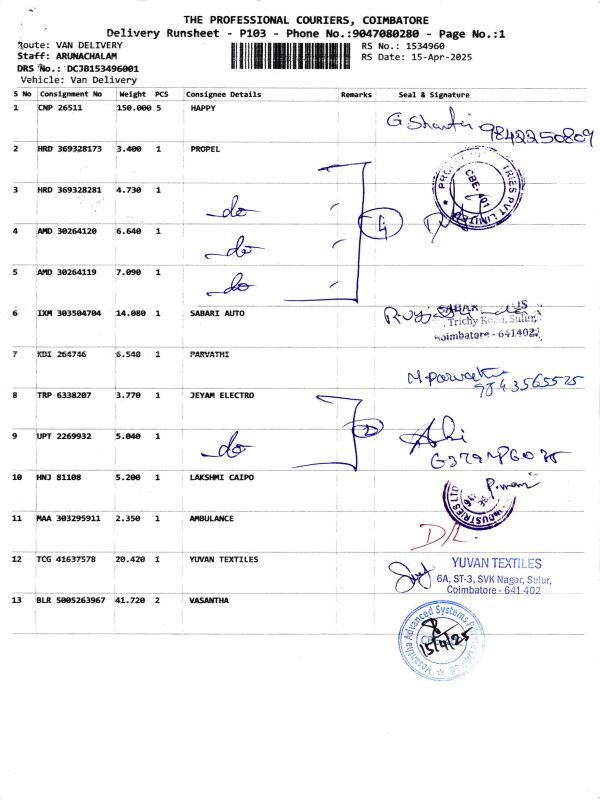 THE PROFESSIONAL COURIERS, COIMBATORE
Delivery Runsheet - P103 - Phone No.:9047080280 - Page No.:1
Route: VAN DELIVERY
RS No.: 1534960
Staff: ARUNACHALAM
RS Date: 15-Apr-2025
DRS No.: DCJB153496001
Vehicle: Van Delivery
S No Consignment No Weight PCS Consignee Details Remarks Seal & Signature
1 CNP 26511 150.000 5 HAPPY
G Shanti 9842250809
2 HRD 369328173 3.400 1 PROPEL
3 HRD 369328281 4.730 1
do
4
CBE-401
4 AMD 30264120 6.640 1
do
5 AMD 30264119 7.090 1
do
6 IXM 303504704 14.080 1 SABARI AUTO
Trichy Road, Sulur,
Coimbatore - 641402
7 KDI 264746 6.540 1 PARVATHI
M. Parvathi
9843565525
8 TRP 6338207 3.770 1 JEYAM ELECTRO
2
9 UPT 2269932 5.040 1
do
10 HNJ 81108 5.200 1 LAKSHMI CAIPO
P. mani
INDUSTRIES LTD
11 MAA 303295911 2.350 1 AMBULANCE
D/L
12 TCG 41637578 20.420 1 YUVAN TEXTILES
YUVAN TEXTILES
6A, ST-3, SVK Nagar, Sulur,
Coimbatore - 641 402
13 BLR 5005263967 41.720 2 VASANTHA
Vasantha Advanced Systems Private Limited
15/4/25